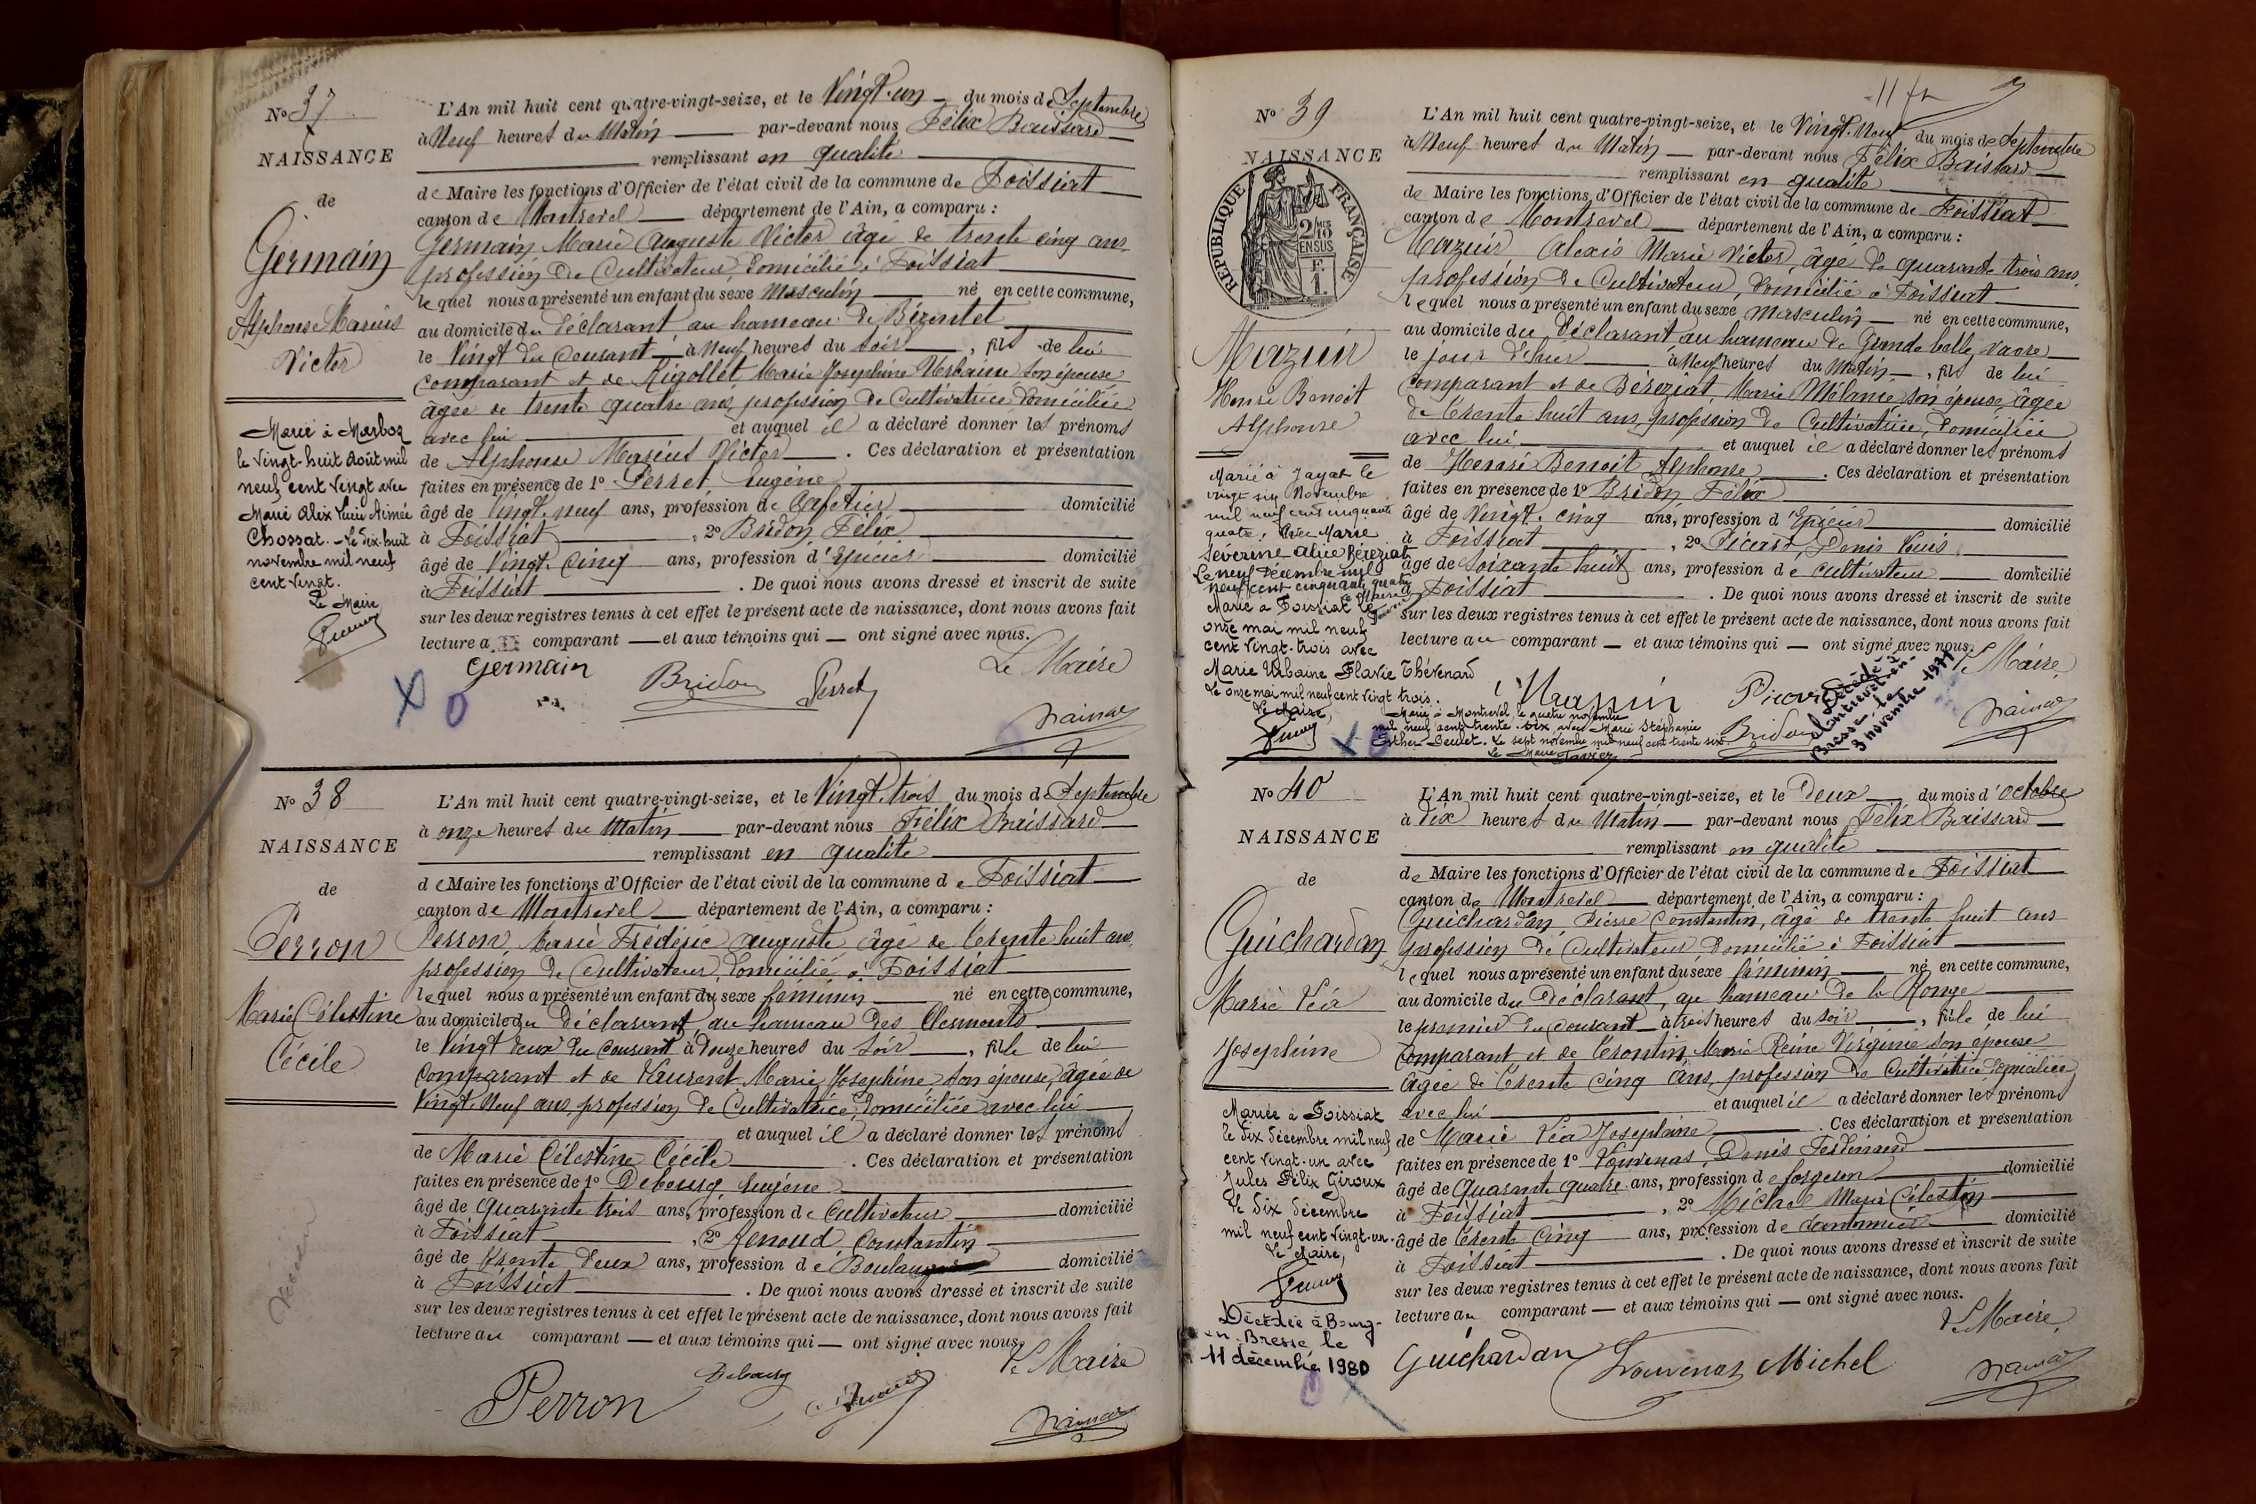 No 37
NAISSANCE
de
Germain
Alphonse Marius
Victor
Marié à Marboz
le vingt-huit Août mil
neuf cent vingt avec
Marie Alix Lucie Aimée
Chossat. - Le dix-huit
novembre mil neuf
cent vingt.
Le Maire
L'An mil huit cent quatre-vingt-seize, et le Vingt-un du mois de Septembre
à Neuf heures du Matin par-devant nous Félix Baissard
remplissant en qualité
de Maire les fonctions d'Officier de l'état civil de la commune de Foissiat
canton de Montrevel département de l'Ain, a comparu :
Germain Marie Auguste Victor âgé de trente cinq ans
profession de Cultivateur, domicilié à Foissiat
lequel nous a présenté un enfant du sexe Masculin né en cette commune,
au domicile du déclarant au hameau de Bézentet
le Vingt du Courant à Neuf heures du Soir, fils de lui
comparant et de Rigollet Marie Joséphine Urbaine son épouse
âgée de trente quatre ans, profession de Cultivatrice domiciliée
avec lui et auquel il a déclaré donner les prénoms
de Alphonse Marius Victor. Ces déclaration et présentation
faites en présence de 1o Perret Eugène
âgé de Vingt-neuf ans, profession de Cafetier domicilié
à Foissiat, 2o Bridon Félix
âgé de Vingt-Cinq ans, profession d'Epicier domicilié
à Foissiat. De quoi nous avons dressé et inscrit de suite
sur les deux registres tenus à cet effet le présent acte de naissance, dont nous avons fait
lecture a comparant et aux témoins qui ont signé avec nous.
Le Maire
Germain Bridon Perret
X 0
No 38
NAISSANCE
de
Perron
Marie Célestine
Cécile
L'An mil huit cent quatre-vingt-seize, et le Vingt-trois du mois de Septembre
à onze heures du Matin par-devant nous Félix Baissard
remplissant en qualité
de Maire les fonctions d'Officier de l'état civil de la commune de Foissiat
canton de Montrevel département de l'Ain, a comparu :
Perron Marie Frédéric Auguste âgé de trente huit ans
profession de Cultivateur, domicilié à Foissiat
lequel nous a présenté un enfant du sexe féminin né en cette commune,
au domicile du déclarant au hameau des Clermonts
le Vingt deux du Courant à Douze heures du Soir, fille de lui
comparant et de Laurent Marie Joséphine son épouse, âgée de
Vingt-Neuf ans, profession de Cultivatrice, domiciliée avec lui
et auquel il a déclaré donner les prénoms
de Marie Célestine Cécile. Ces déclaration et présentation
faites en présence de 1o Debourg Eugène
âgé de Quarante trois ans, profession de Cultivateur domicilié
à Foissiat, 2o Renoud Constantin
âgé de Trente Deux ans, profession de Boulanger domicilié
à Foissiat. De quoi nous avons dressé et inscrit de suite
sur les deux registres tenus à cet effet le présent acte de naissance, dont nous avons fait
lecture au comparant et aux témoins qui ont signé avec nous.
Le Maire
Perron Debourg
No 39
NAISSANCE
REPUBLIQUE FRANÇAISE
2/10
EN SUS
Mazuir
Henri Benoit
Alphonse
Marié à Jayat le
vingt six Novembre
mil neuf cent cinquante
quatre, avec Marie
Séverine Alice Béréziat
Le neuf Décembre mil
neuf cent cinquante quatre
Marié à Foissiat le
onze mai mil neuf
cent vingt-trois avec
Marie Urbaine Flavie Thévenard
Le onze mai mil neuf cent vingt trois.
Le Maire,
L'An mil huit cent quatre-vingt-seize, et le Vingt-Neuf du mois de Septembre
à Neuf heures du Matin par-devant nous Félix Baissard
remplissant en qualité
de Maire les fonctions d'Officier de l'état civil de la commune de Foissiat
canton de Montrevel département de l'Ain, a comparu :
Mazuir Alexis Marie Victor, âgé de quarante trois ans
profession de Cultivateur, domicilié à Foissiat
lequel nous a présenté un enfant du sexe Masculin né en cette commune,
au domicile du déclarant au hameau de Grande belle vavre
le jour d'hier à Neuf heures du Matin, fils de lui
comparant et de Béréziat, Marie Mélanie son épouse âgée
de trente huit ans, profession de Cultivatrice, domiciliée
avec lui et auquel il a déclaré donner les prénoms
de Henri Benoit Alphonse. Ces déclaration et présentation
faites en présence de 1o Bridon Félix
âgé de Vingt-cinq ans, profession d'Epicier domicilié
à Foissiat, 2o Picard, Denis Louis
âgé de Soixante huit ans, profession de cultivateur domicilié
à Foissiat. De quoi nous avons dressé et inscrit de suite
sur les deux registres tenus à cet effet le présent acte de naissance, dont nous avons fait
lecture au comparant et aux témoins qui ont signé avec nous.
Le Maire,
Mazuir Picard
Bridon
Marié à Montrevel, le quatre novembre
mil neuf cent trente-six avec Marie Stéphanie
Esther Le sept novembre mil neuf cent trente six
Le Maire
Décédé à
Montrevel-en-
Bresse, le
3 novembre 1971
No 40
NAISSANCE
de
Guichardan
Marie Léa
Josephine
Mariée à Foissiat
le dix décembre mil neuf
cent vingt-un avec
Jules Félix Giroux
Le dix décembre
mil neuf cent vingt-un.
Le Maire,
Décédée à Bourg-
en-Bresse le
11 décembre 1980
L'An mil huit cent quatre-vingt-seize, et le Deux du mois d'octobre
à Dix heures du Matin par-devant nous Félix Baissard
remplissant en qualité
de Maire les fonctions d'Officier de l'état civil de la commune de Foissiat
canton de Montrevel département de l'Ain, a comparu :
Guichardan, Pierre Constantin, âgé de trente huit ans
profession de Cultivateur domicilié à Foissiat
lequel nous a présenté un enfant du sexe féminin né en cette commune,
au domicile du Déclarant, au hameau de la Ronge
le premier du Courant à trois heures du soir, fille de lui
comparant et de Crontin Marie Reine Virginie son épouse
âgée de trente cinq ans, profession de Cultivatrice domiciliée
avec lui et auquel il a déclaré donner les prénoms
de Marie Léa Josephine. Ces déclaration et présentation
faites en présence de 1o Louvenas, Denis Ferdinand
âgé de Quarante quatre ans, profession de forgeron domicilié
à Foissiat, 2o Michel Marie Célestin
âgé de trente Cinq ans, profession de Cantonnier domicilié
à Foissiat. De quoi nous avons dressé et inscrit de suite
sur les deux registres tenus à cet effet le présent acte de naissance, dont nous avons fait
lecture au comparant et aux témoins qui ont signé avec nous.
Le Maire,
Guichardan Louvenas Michel